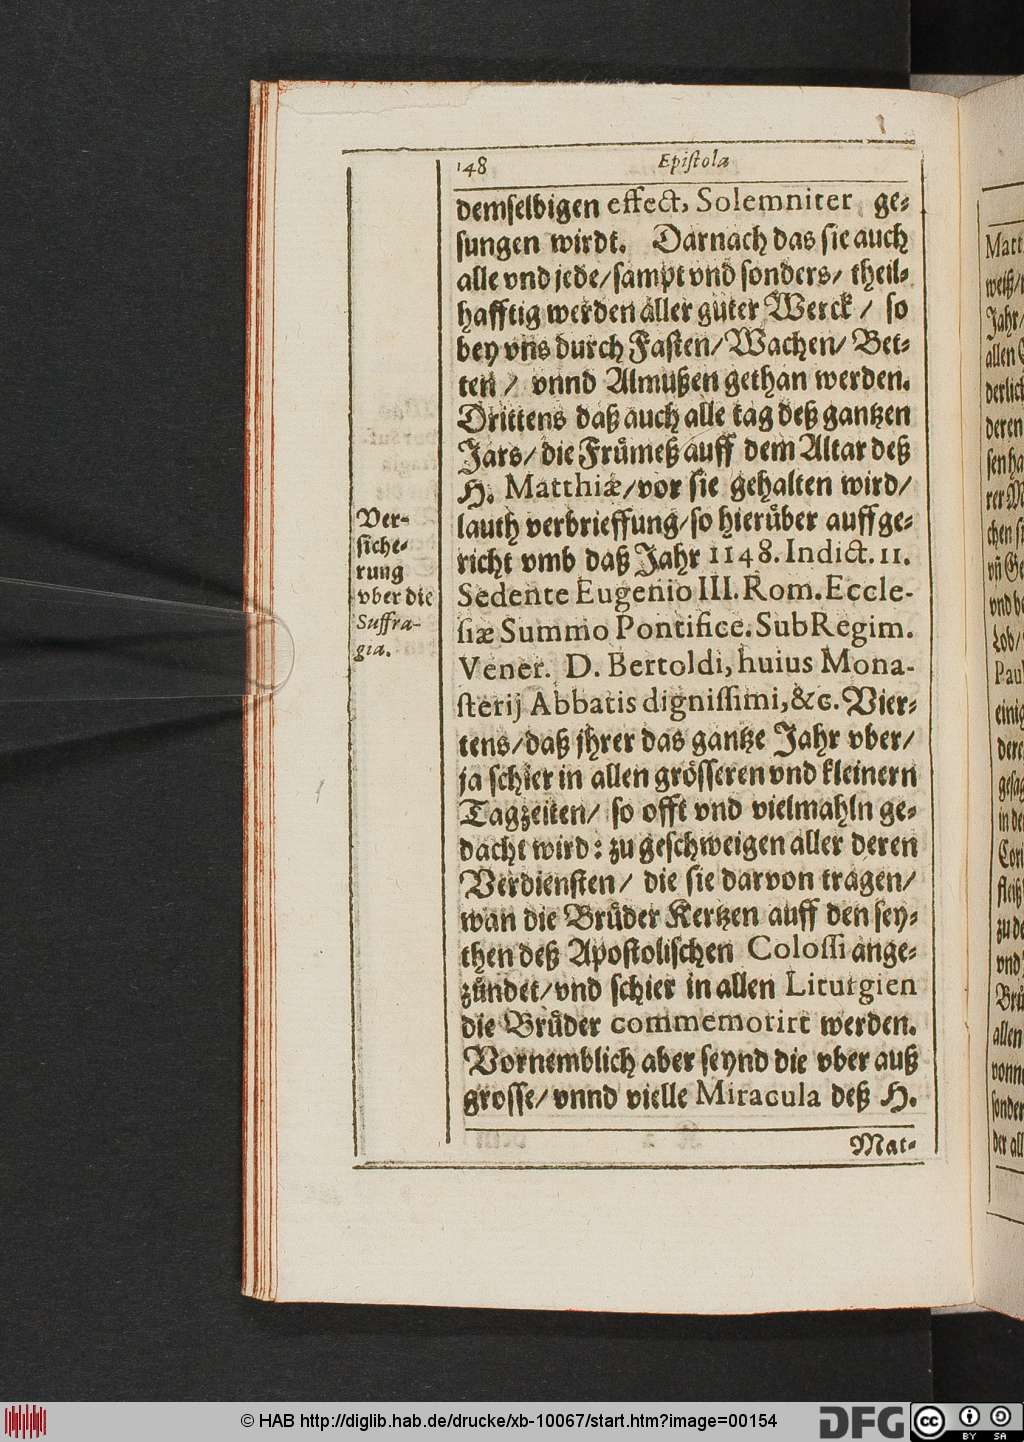 148 Epistola
demselbigen effect, Solemniter ge-
sungen wirdt. Darnach das sie auch
alle vnd jede/sampt vnd sonders/ theil-
hafftig werden aller guter Werck / so
bey vns durch Fasten/Wachen/ Bet-
ten / vnnd Almußen gethan werden.
Drittens daß auch alle tag deß gantzen
Jars/die Fruͤmeß auff dem Altar deß
H. Matthiæ/vor sie gehalten wird/
lauth verbrieffung/so hieruͤber auffge-
richt vmb daß Jahr 1148. Indict. 11.
Sedente Eugenio III. Rom. Eccle-
siæ Summo Pontifice. Sub Regim.
Vener. D. Bertoldi, huius Mona-
sterij Abbatis dignissimi, &c. Vier-
tens/daß jhrer das gantze Jahr vber/
ja schier in allen groͤsseren vnd kleinern
Tagzeiten/ so offt vnd vielmahln ge-
dacht wird: zu geschweigen aller deren
Verdiensten/ die sie darvon tragen/
wan die Bruͤder Kertzen auff den sey-
then deß Apostolischen Colossi ange-
zuͤndet/vnd schier in allen Liturgien
die Bruͤder commemorirt werden.
Vornemblich aber seynd die vber auß
grosse/vnnd vielle Miracula deß H.
Mat-
Ver-
siche-
rung
vber die
Suffra-
gia.
Matt
weiß/
Jahr/
allen
derlich
deren
sen ha
rer M
chen
vñ Ge
vnd be
Lob/
Pau
einig
dere
gesag
in de
Cori
fleiß
zu de
vnd
Bruͤ
allen
vonne
sonder
der all
© HAB http://diglib.hab.de/drucke/xb-10067/start.htm?image=00154
DFG
cc BY SA